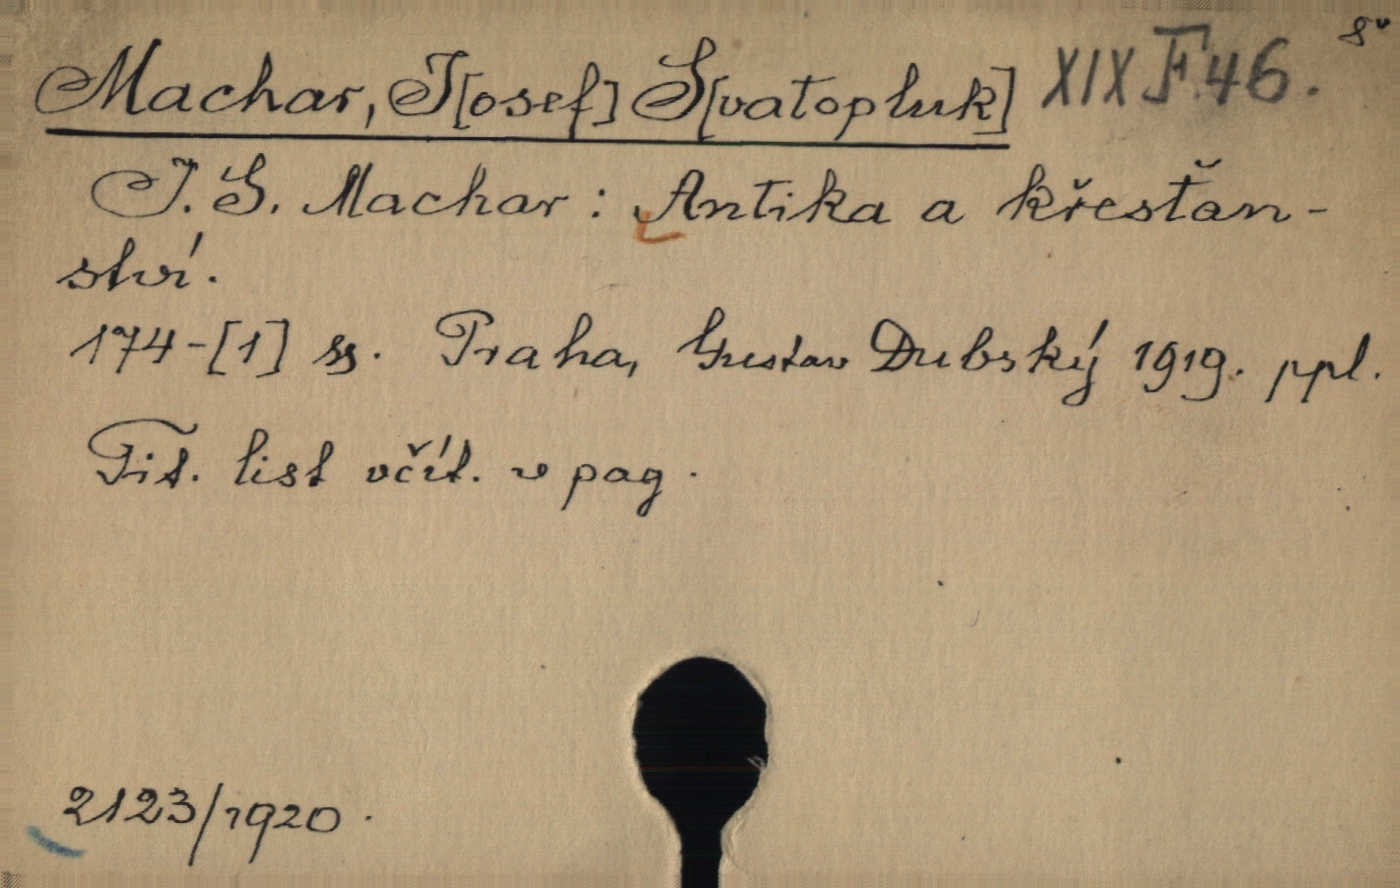 Machar, J[osef] S[vatopluk] XIX F 46. 8°
J. S. Machar: Antika a křesťan-
ství.
174-[1] ss. Praha, Gustav Dubský 1919. ppl.
Tit. list včít. v pag.
2123/1920.